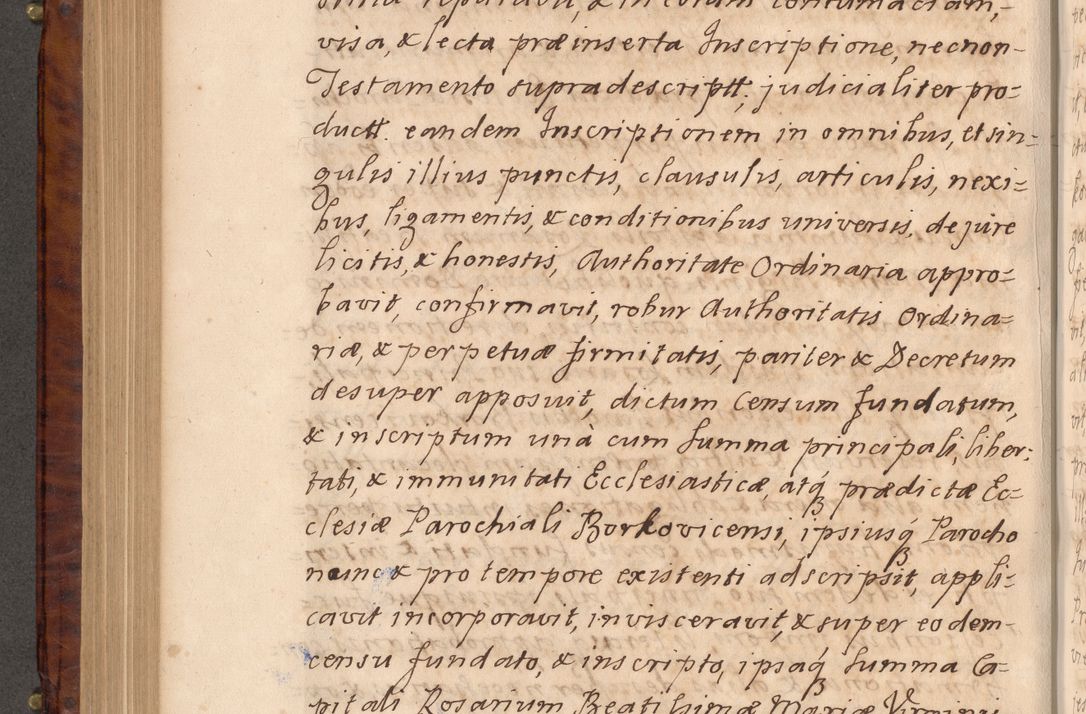 visa, & lecta præinserta Inscriptione, necnon-
Testamento supradescriptt. judicialiter pro=
ductt. eandem Inscriptionem in omnibus, et sin=
gulis illius punctis, clausulis, articulis, nexi=
bus, ligamentis, & conditionibus universis, de jure
licitis, & honestis, Authoritate Ordinaria appro=
bavit, confirmavit, robur Authoritatis Ordina=
riæ, & perpetuæ firmitatis, pariter & Decretum
desuper apposuit, dictum Censum fundatum,
& inscriptum unà cum Summa principali, liber=
tati, & immunitati Ecclesiasticæ, atq́ prædictæ Ec=
clesiæ Parochiali Borkovicensi, ipsiusq́ Parocho
nunc & pro tempore existenti adscripsit, appli=
cavit incorporavit, invisceravit, & super eodem-
censu fundato, & inscripto, ipsaq́ Summa Ca=
pitali Rosarium Beatissimæ Mariæ Virginis